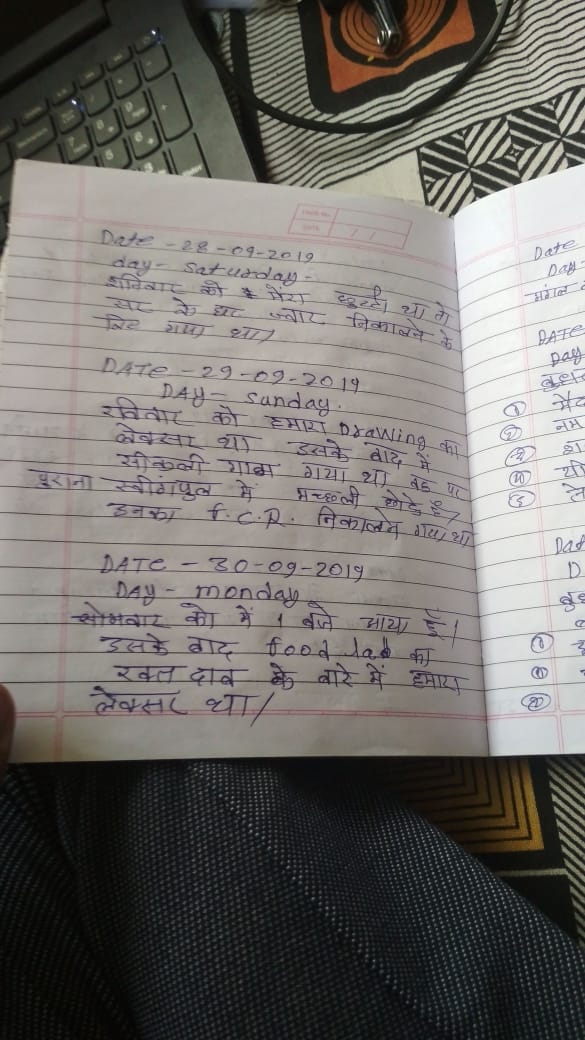 Date - 28-09-2019
day - Saturday -
शनिवार को मेरा छुट्टी था मे
सर के घर ज्वार निकालने के
लिए गया था/
DATE - 29-09-2019
DAY - Sunday.
रविवार को हमारा Drawing का
लेक्सर था उसके बाद में
सीकली गाम गया था वह पर
पुराना स्वीगंपुल में मच्छली छोडे है/
इनका F.C.R. निकालने गया था
DATE - 30-09-2019
DAY - monday
सोमवार को में 1 बजे आया हूँ/
उसके बाद food lab का
रक्त दाब के बारे में हमारा
लेक्सर था/
Date
Day-
DATE
Day
Dat
D